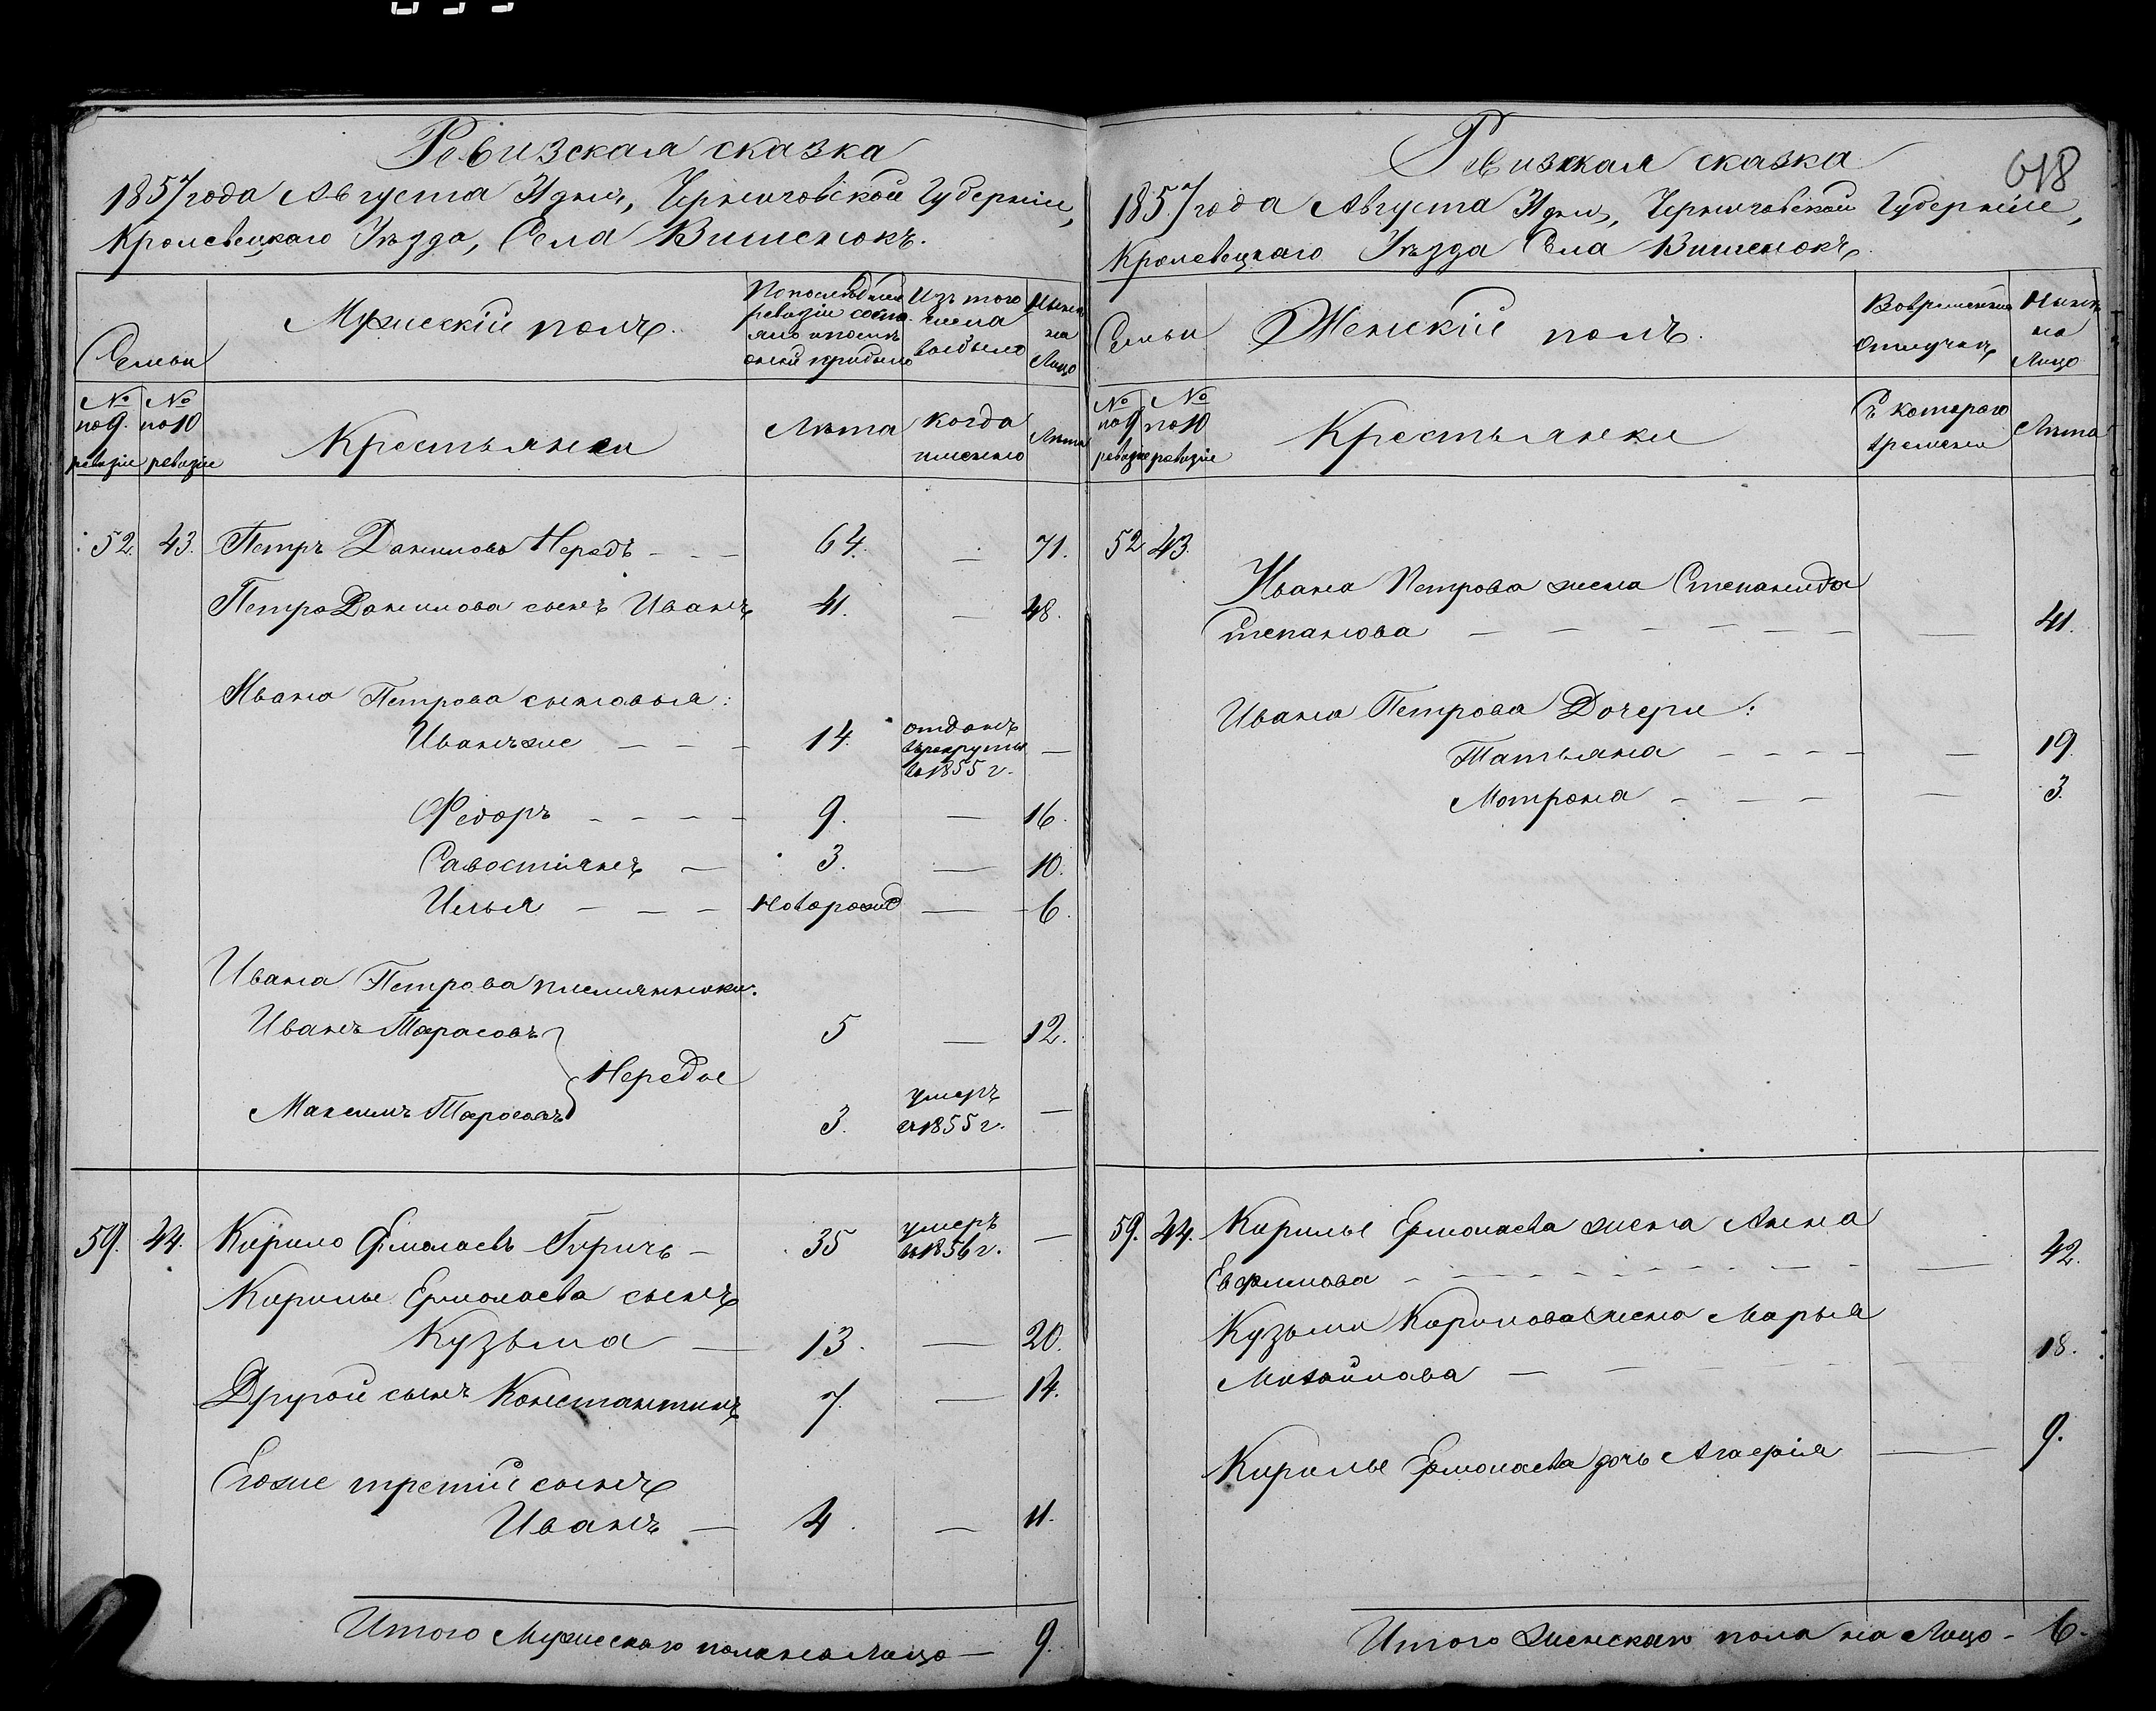 Ревизская сказка
1857 года Августа 31 дня, Черниговской Губерніи,
Кролевецкаго Уѣзда, Села Вишенокъ.
Семьи
Мужескій полъ.
По последней
ревизіи состо
яло и после
оной прибыло
Изъ того
числа
выбыло
Нынѣ
на
Лицо
№
по 9.
ревизіи
№
по 10
ревизіи
Крестьяне
Лѣта
когда
именно
Лѣта
52. 43. Петръ Даниловъ Нередъ - - - 64. — 71.
Петра Данилова сынъ Иванъ 41. — 48.
Ивана Петрова сыновья:
Иванъ же — - - 14. отданъ
въ рекруты —
въ 1855 г.
Федоръ - - - - 9. — 16.
Савостіянъ — 3. — 10.
Илья - — - Новорожд — 6.
Ивана Петрова племянники.
Иванъ Тарасовъ 5 — 12.
Нередые
Максимъ Тарасовъ 3. умеръ
въ 1855 г. —
59. 44. Кирило Ермолаевъ - 35 умеръ
въ 1856 г. —
Кирилы Ермолаева сынъ
Кузьма — 13. — 20.
Другой сынъ Константинъ 7. — 14.
Егоже третій сынъ
Иванъ — 4. — 11.
Итого Мужескаго пола на лицо — 9.
Ревизская сказка
618
1857 года Августа 31 дня, Черниговской Губерніи,
Кролевецкаго Уѣзда Села Вишенокъ.
Семьи
Женскій полъ.
Во временной
отлучкѣ
Нынѣ
на
Лицо
№
по 9
ревизіи
№
по 10
ревизіи
Крестьянки
Съ котораго
времени
Лѣта
52 43.
Ивана Петрова жена Степанида
Степанова — — — — 41.
Ивана Петрова Дочери:
Татьяна - - - - — 19.
Мотрона - - — — 3.
59. 44. Кирилы Ермолаева жена Анна
Евфимова - - - - — 42.
Кузьмы Кирилова жена Марья
Михайлова — — 18.
Кирилы Ермолаева дочь Агафія — 9.
Итого Женскаго пола на Лицо - 6.